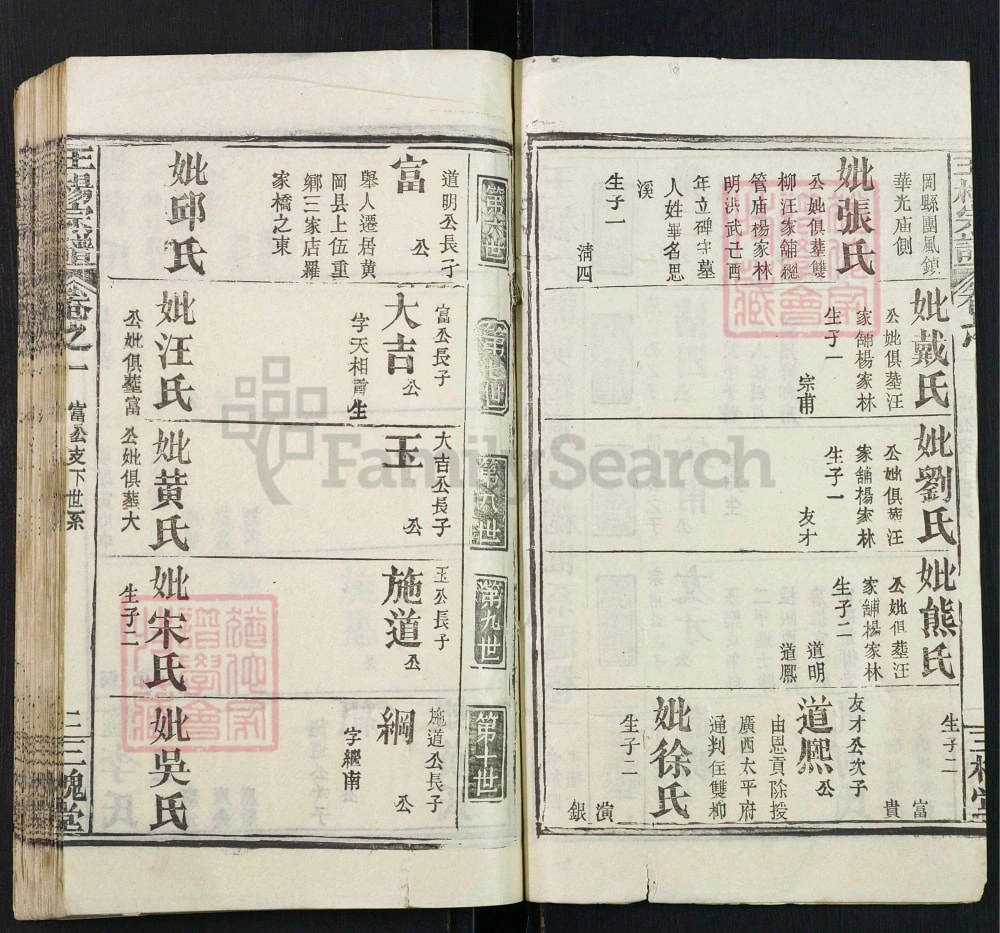 岡縣團風鎮
華光庙側
妣張氏
公妣俱塟雙
柳汪家舖總
管庙楊家林
明洪武己酉
年立碑字墓
人姓畢名思
溪
生子一
淸四
妣戴氏
公妣俱塟汪
家舖楊家林
生子一
宗甫
妣劉氏
公妣俱塟汪
家舖楊家林
生子一
友才
妣熊氏
公妣俱塟汪
家舖楊家林
生子二
道明
道熈
生子二
富
貴
友才公次子
道熈公
由恩貢除授
廣西太平府
通判住雙柳
妣徐氏
生子二
演
銀
第六世
道明公長子
富公
舉人遷居黄
岡县上伍重
鄉三家店羅
家橋之東
妣邱氏
第七世
富公長子
大吉公
字天相
生
妣汪氏
公妣俱塟富
第八世
大吉公長子
玉公
妣黄氏
公妣俱葬大
第九世
玉公長子
施道公
妣宋氏
生子二
第十世
施道公長子
綱公
字繼南
妣吳氏
王楊宗譜
卷之一
富公支下世系
二
三槐堂
FamilySearch